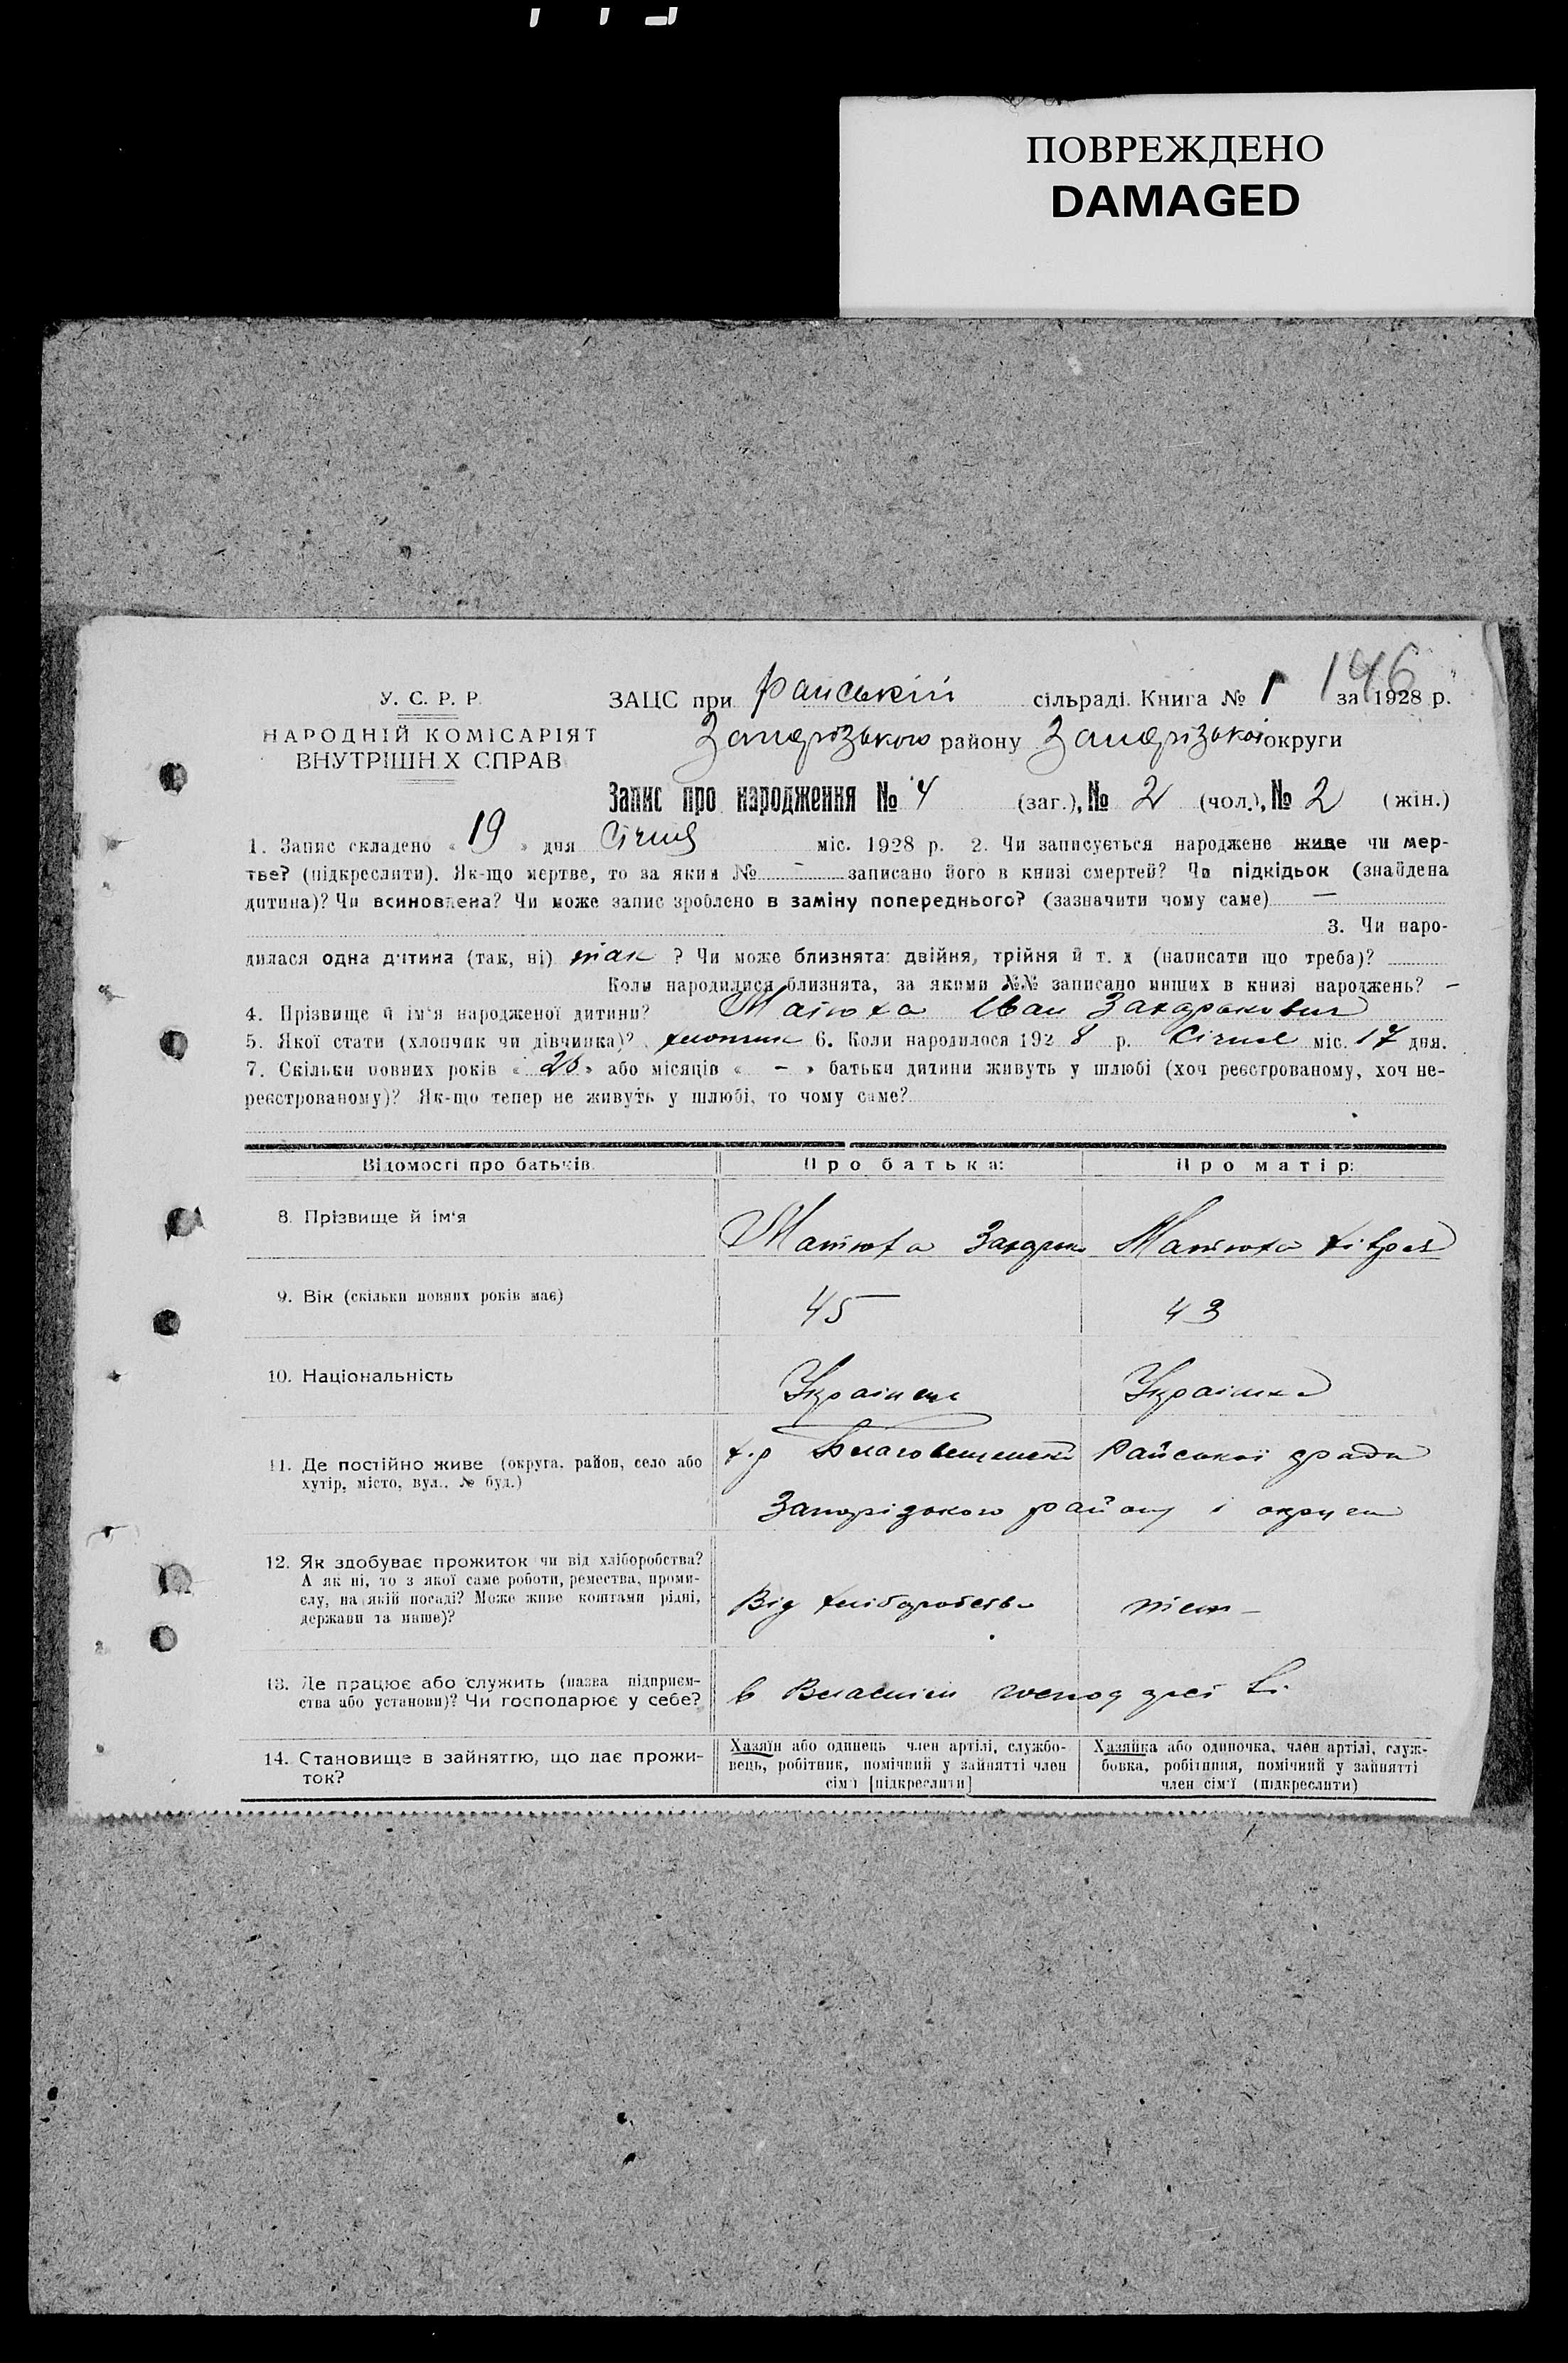 ПОВРЕЖДЕНО
DAMAGED
146
У. С. Р. Р.
НАРОДНІЙ КОМІСАРІЯТ
ВНУТРІШНІХ СПРАВ
ЗАЦС при Райській сільраді. Книга № 1 за 1928 р.
Запорізького району Запорізької округи
Запис про народження № 4 (заг.), № 2 (чол.), № 2 (жін.)
1. Запис складено « 19 » дня Січня міс. 1928 р. 2. Чи записується народжене живе чи мер-
тве? (підкреслити). Як-що мертве, то за яким № - записано його в книзі смертей? Чи підкідьок (знайдена
дитина)? Чи всиновлена? Чи може запис зроблено в заміну попереднього? (зазначити чому саме) —
3. Чи наро-
дилася одна дитина (так, ні) так ? Чи може близнята: двійня, трійня й т. д (написати що треба)?
Коли народилися близнята, за якими №№ записано инших в книзі народжень? -
4. Прізвище й ім'я народженої дитини? Матюха Іван Захарькович
5. Якої стати (хлопчик чи дівчинка)? хлопчик 6. Коли народилося 192 8 р. Січня міс. 17 дня.
7. Скільки повних років « 26 » або місяців « - » батьки дитини живуть у шлюбі (хоч реєстрованому, хоч не-
реєстрованому)? Як-що тепер не живуть у шлюбі, то чому саме?
Відомості про батьків. Про батька: Про матір:
8. Прізвище й ім'я Матюха Захарько Матюха
9. Вік (скільки повних років має) 45 43
10. Національність Українець Українка
11. Де постійно живе (округа, район, село або
хутір, місто, вул., № буд.)
х-р Благовещенський Райської зради
Запорізького району і округи
12. Як здобуває прожиток чи від хліборобства?
А як ні, то з якої саме роботи, ремества, проми-
слу, на якій посаді? Може живе коштами рідні,
держави та инше)?
Від хліборобства теж -
13. Де працює або служить (назва підприєм-
ства або установи)? Чи господарює у себе?
в Власнім господарстві
14. Становище в зайняттю, що дає прожи-
ток?
Хазяїн або одинець член артілі, службо-
вець, робітник, помічний у зайнятті член
сім'ї [підкреслити]
Хазяйка або одиночка, член артілі, служ-
бовка, робітниця, помічний у зайнятті
член сім'ї (підкреслити)